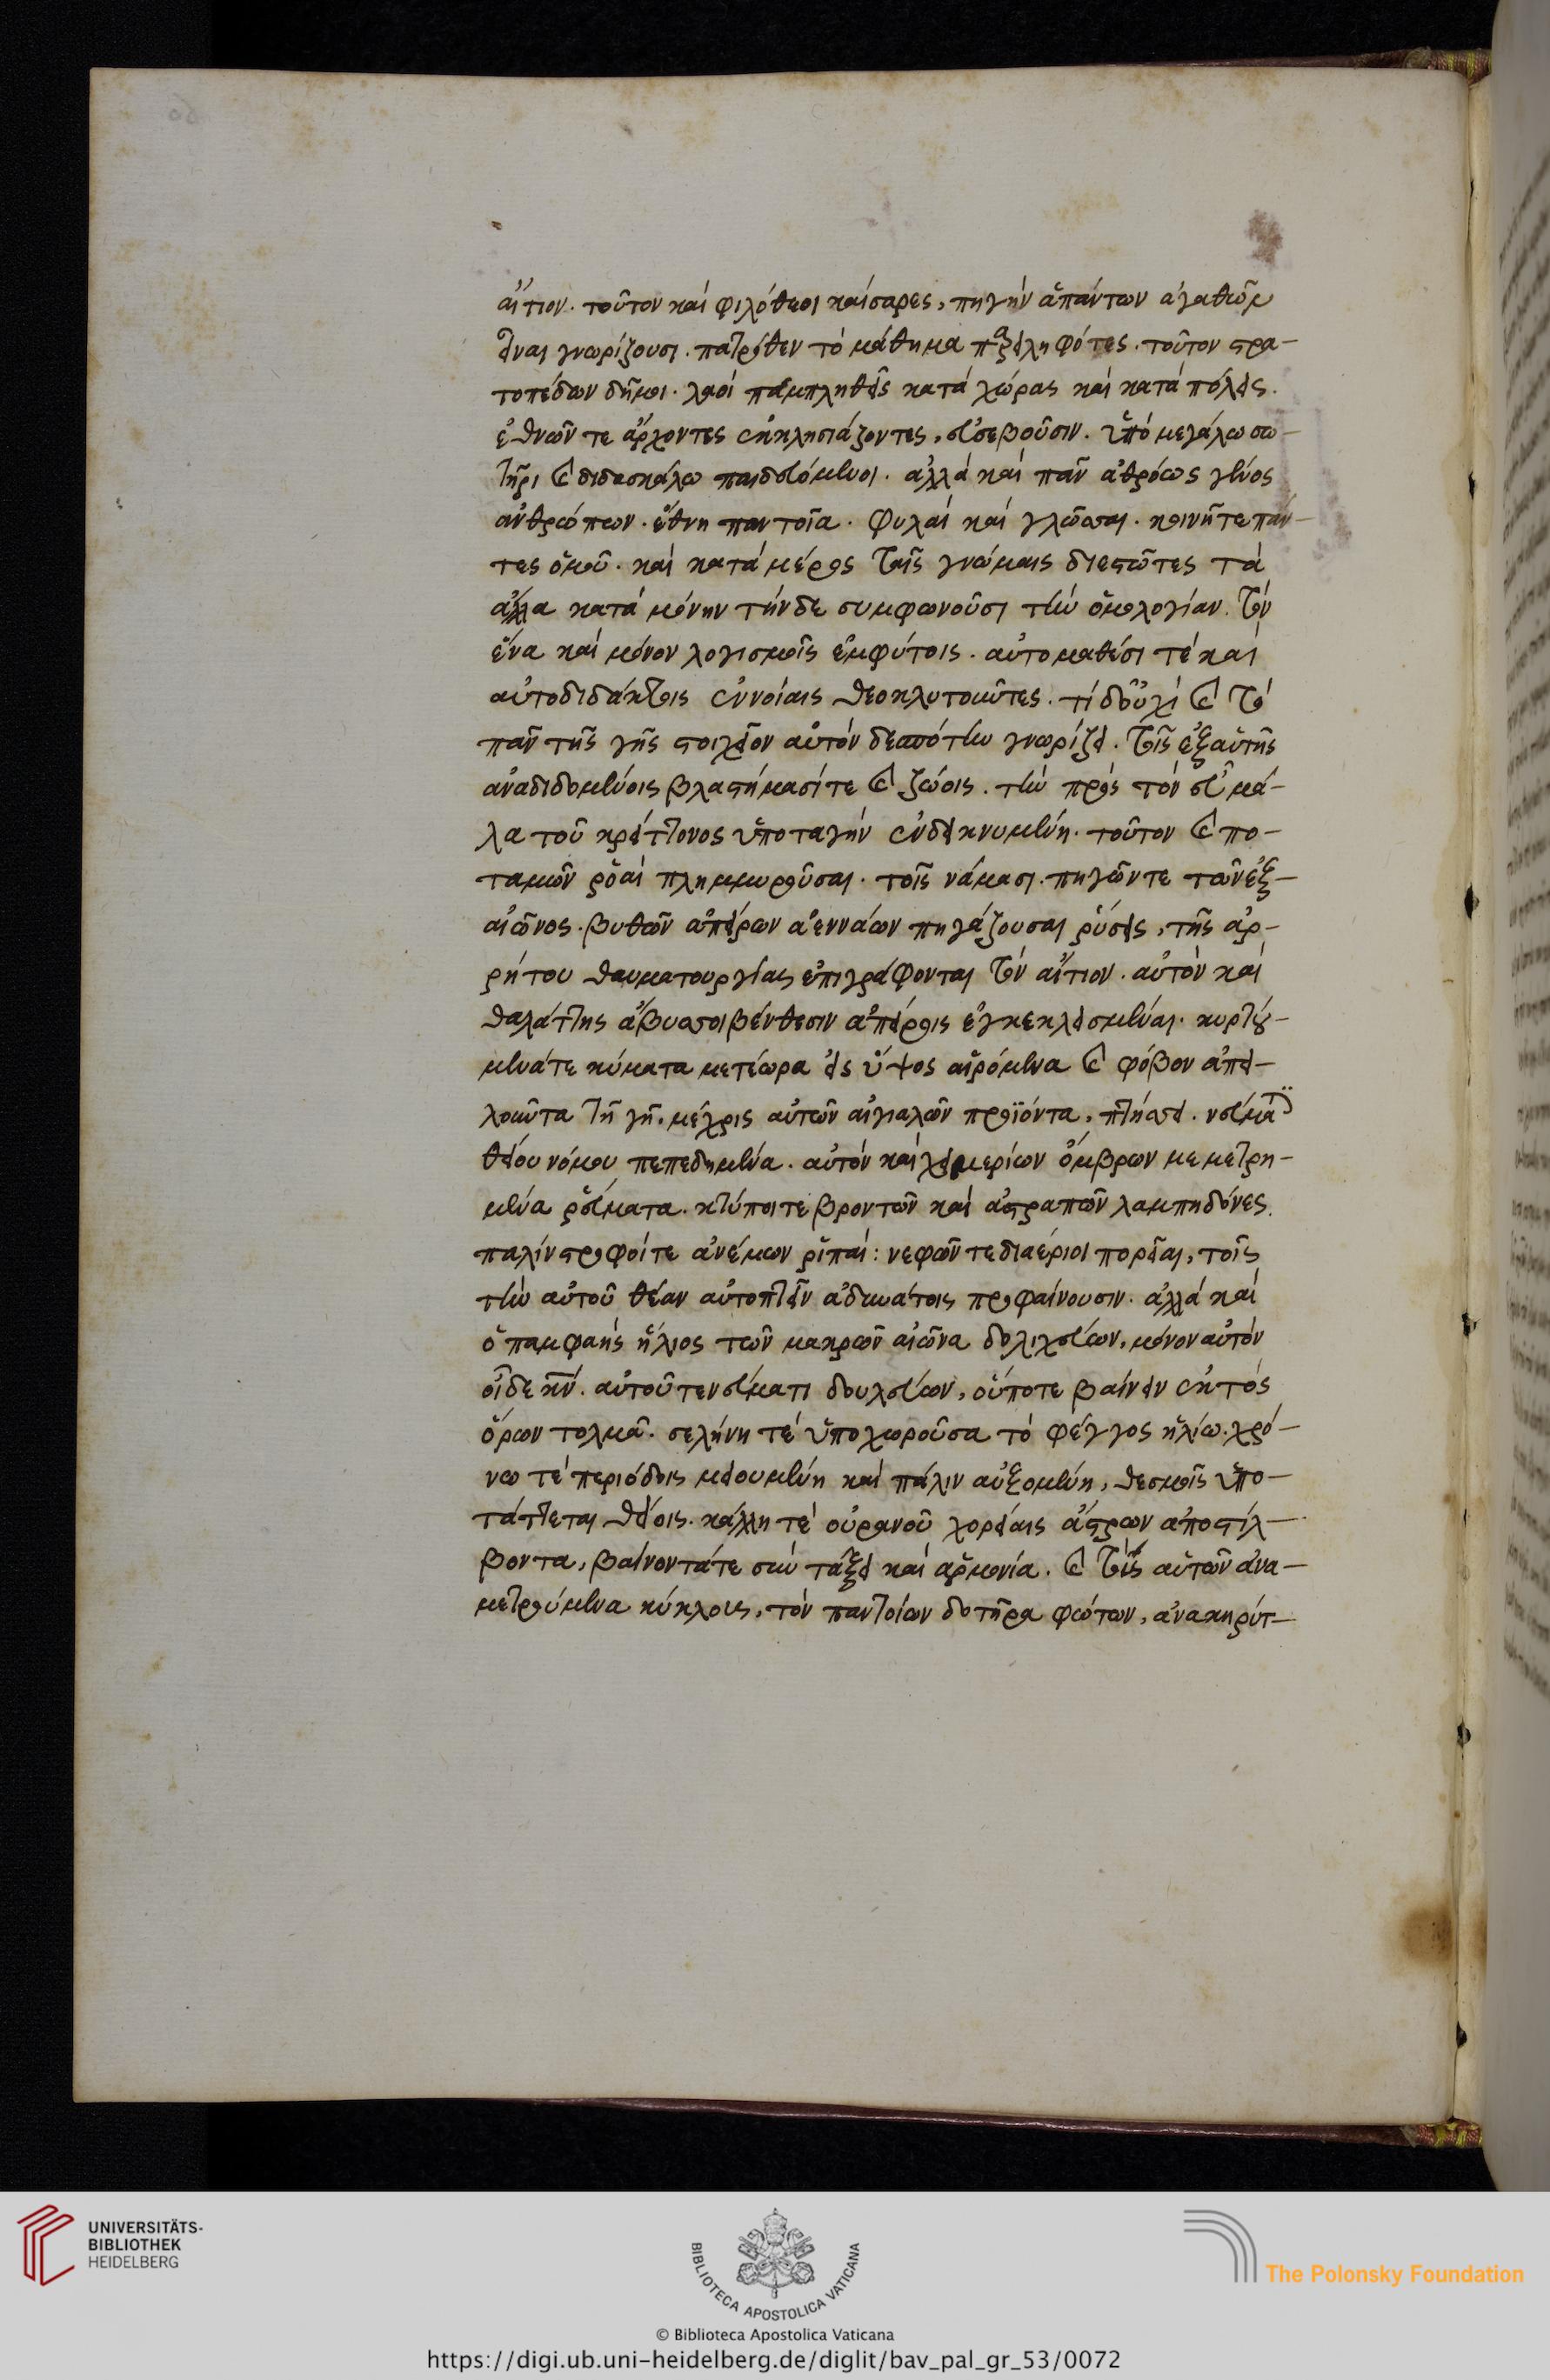 αἴτιον. τοῦτον καὶ φιλόθεοι καίσαρες, πηγὴν ἁπάντων ἀγαθῶν
εἶναι γνωρίζουσι. πατρόθεν τὸ μάθημα παρειληφότες. τοῦτον στρα-
τοπέδων δῆμοι. λαοὶ παμπληθεῖς κατὰ χώρας καὶ κατὰ πόλεις.
ἐθνῶν τε ἄρχοντες ἐκκλησιάζοντες, εὐσεβοῦσιν. ὑπὸ μεγάλω σω-
τῆρι καὶ διδασκάλω παιδευόμενοι. ἀλλὰ καὶ πᾶν ἀθρόως γένος
ἀνθρώπων. ἔθνη παντοῖα. φυλαὶ καὶ γλῶσσαι. κοινῆ τε πάν-
τες ὁμοῦ. καὶ κατὰ μέρος ταῖς γνώμαις διεστῶτες τὰ
ἄλλα κατὰ μόνην τήνδε συμφωνοῦσι τὴν ὁμολογίαν. τὸν
ἕνα καὶ μόνον λογισμοῖς ἐμφύτοις. αὐτομαθέσι τὲ καὶ
αὐτοδιδάκτοις ἐννοίαις θεοκλυτοῦντες. τί δ' οὐχὶ καὶ τὸ
πᾶν τῆς γῆς στοιχεῖον αὐτὸν δεσπότην γνωρίζει. τοῖς ἐξ αὐτῆς
ἀναδιδομένοις βλαστήμασί τε καὶ ζώοις. τὴν πρὸς τὸν εὖ μά-
λα τοῦ κρείττονος ὑποταγὴν ἐνδεικνυμένη. τοῦτον καὶ πο-
ταμῶν ῥοαὶ πλημμυροῦσαι. τοῖς νάμασι. πηγῶν τε τῶν ἐξ-
αἰῶνος. βυθῶν ἀπείρων ἀεννάων πηγάζουσαι ῥύσεις, τῆς ἀρ-
ρήτου θαυματουργίας ἐπιγράφονται τὸν αἴτιον. αὐτὸν καὶ
θαλάττης ἄβυσσοι βένθεσιν ἀπείροις ἐγκεκλεισμέναι. κυρτού-
μενά τε κύματα μετέωρα εἰς ὕψος αἰρόμενα καὶ φόβον ἀπει-
λοῦντα τῆ γῆ. μέχρις αὐτῶν αἰγιαλῶν προϊόντα, πτήσσει. νεύματι
θείου νόμου πεπεδημένα. αὐτὸν καὶ χειμερίων ὄμβρων μεμετρη-
μένα ῥεύματα. κτύποι τε βροντῶν καὶ ἀστραπῶν λαμπηδόνες.
παλίνστροφοί τε ἀνέμων ῥιπαί: νεφῶν τε διαέριοι πορεῖαι, τοῖς
τὴν αὐτοῦ θέαν αὐτοπτεῖν ἀδυνάτοις προφαίνουσιν. ἀλλὰ καὶ
ὁ παμφαὴς ἥλιος τῶν μακρῶν αἰῶνα δολιχεύων, μόνον αὐτὸν
οἶδε κύριον. αὐτοῦ τε νεύματι δουλεύων, οὔποτε βαίνειν ἐκτὸς
ὅρων τολμᾶ. σελήνη τὲ ὑποχωροῦσα τὸ φέγγος ἡλίω. χρό-
νω τὲ περιόδοις μειουμένη καὶ πάλιν αὐξομένη, θεσμοῖς ὑπο-
τάττεται θείοις. κάλλη τὲ οὐρανοῦ χορείαις ἄστρων ἀποστίλ-
βοντα, βαίνοντά τε σὺν τάξει καὶ ἁρμονία. καὶ τοῖς αὐτῶν ἀνα-
μετρούμενα κύκλοις, τὸν παντοίων δοτῆρα φώτων, ἀνακηρύτ-
UNIVERSITÄTS-
BIBLIOTHEK
HEIDELBERG
BIBLIOTECA APOSTOLICA VATICANA
© Biblioteca Apostolica Vaticana
The Polonsky Foundation
https://digi.ub.uni-heidelberg.de/diglit/bav_pal_gr_53/0072